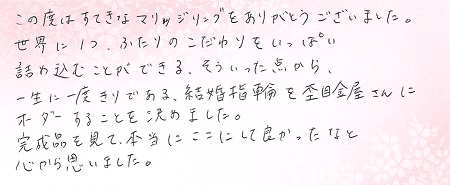 この度はすてきなマリッジリングをありがとうございました。
世界に1つ、ふたりのこだわりをいっぱい
詰め込むことができる、そういった点から、
一生に一度きりである、結婚指輪を杢目金屋さんに
オーダーすることを決めました。
完成品を見て、本当にここにして良かったなと
心から思いました。